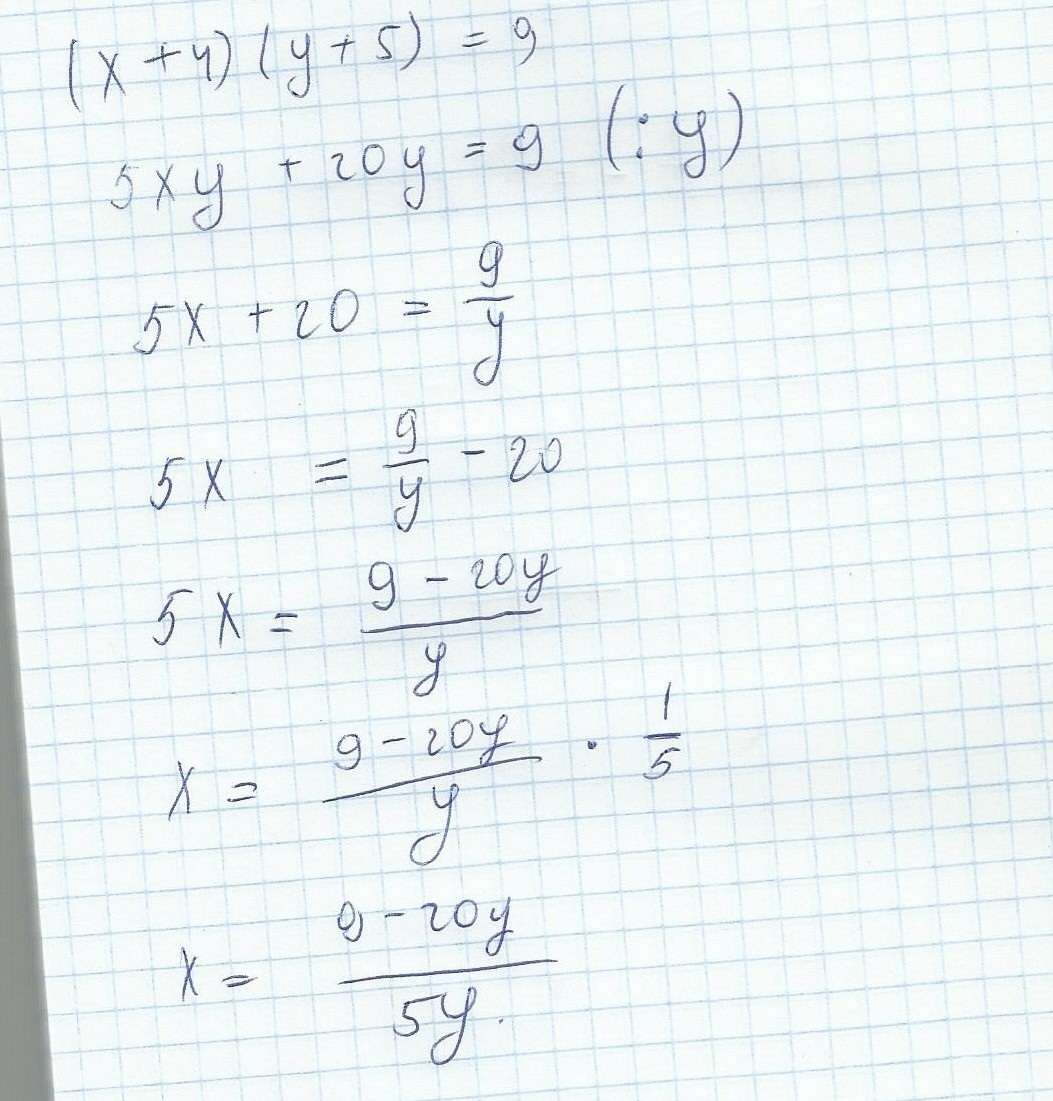 (x+4)(y+5) = 9
5xy + 20y = 9 (:y)
5x + 20 = 9/y
5x = 9/y - 20
5x = (9 - 20y)/y
x = (9 - 20y)/y · 1/5
x = (9 - 20y)/5y.